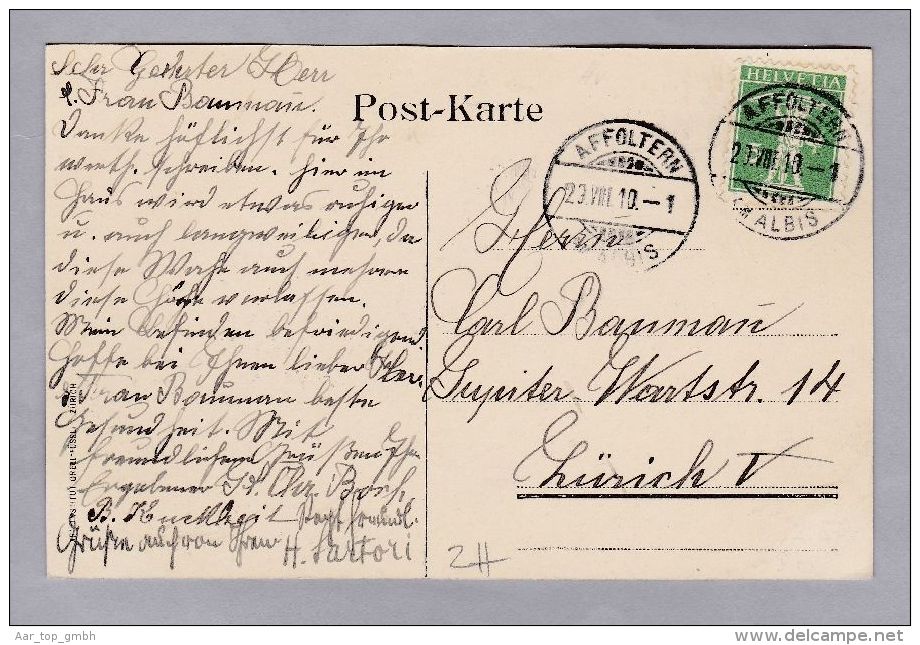 Sehr Geehrter Herr
u. Frau Baumann.
Danke höflichst für Ihr
werth. schreiben. hier im
Haus wird etwas ruhiger
u. auch langweiliger, da
diese Woche auch mehrere
diese Höhe verlassen.
Mein befinden befriedigend
hoffe bei Ihnen lieber Herr
u. Frau Baumann beste
Gesundheit. Mit
freundlichen Grüßen Ihr
Ergebener
Grüße auch von Ihrem
H. Sartori
Post-Karte
HELVETIA
AFFOLTERN
23.VIII.10.-1
AM ALBIS
AFFOLTERN
23.VIII.10.-1
ALBIS
Herrn
Carl Baumaū
Jupiter-Wartstr. 14
Zürich V
ZÜRICH
Aar_top_gmbh
www.delcampe.net